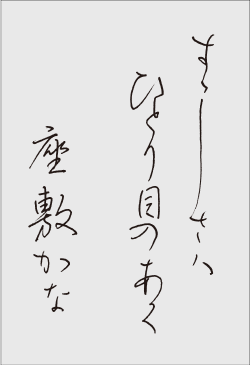 すゞしさハ
ひとり目のあく
座敷かな